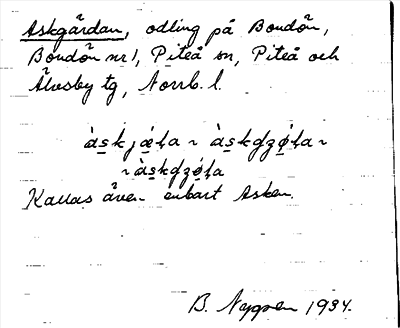 Askgärdan, odling på Bondön,
Bondön nr 1, Piteå sn, Piteå och
Älvsby tg, Norrb. l.
àskjǽţa ~ àskʤǿţa ~
~ àskʤǿţa
Kallas även enbart Asken.
1934.